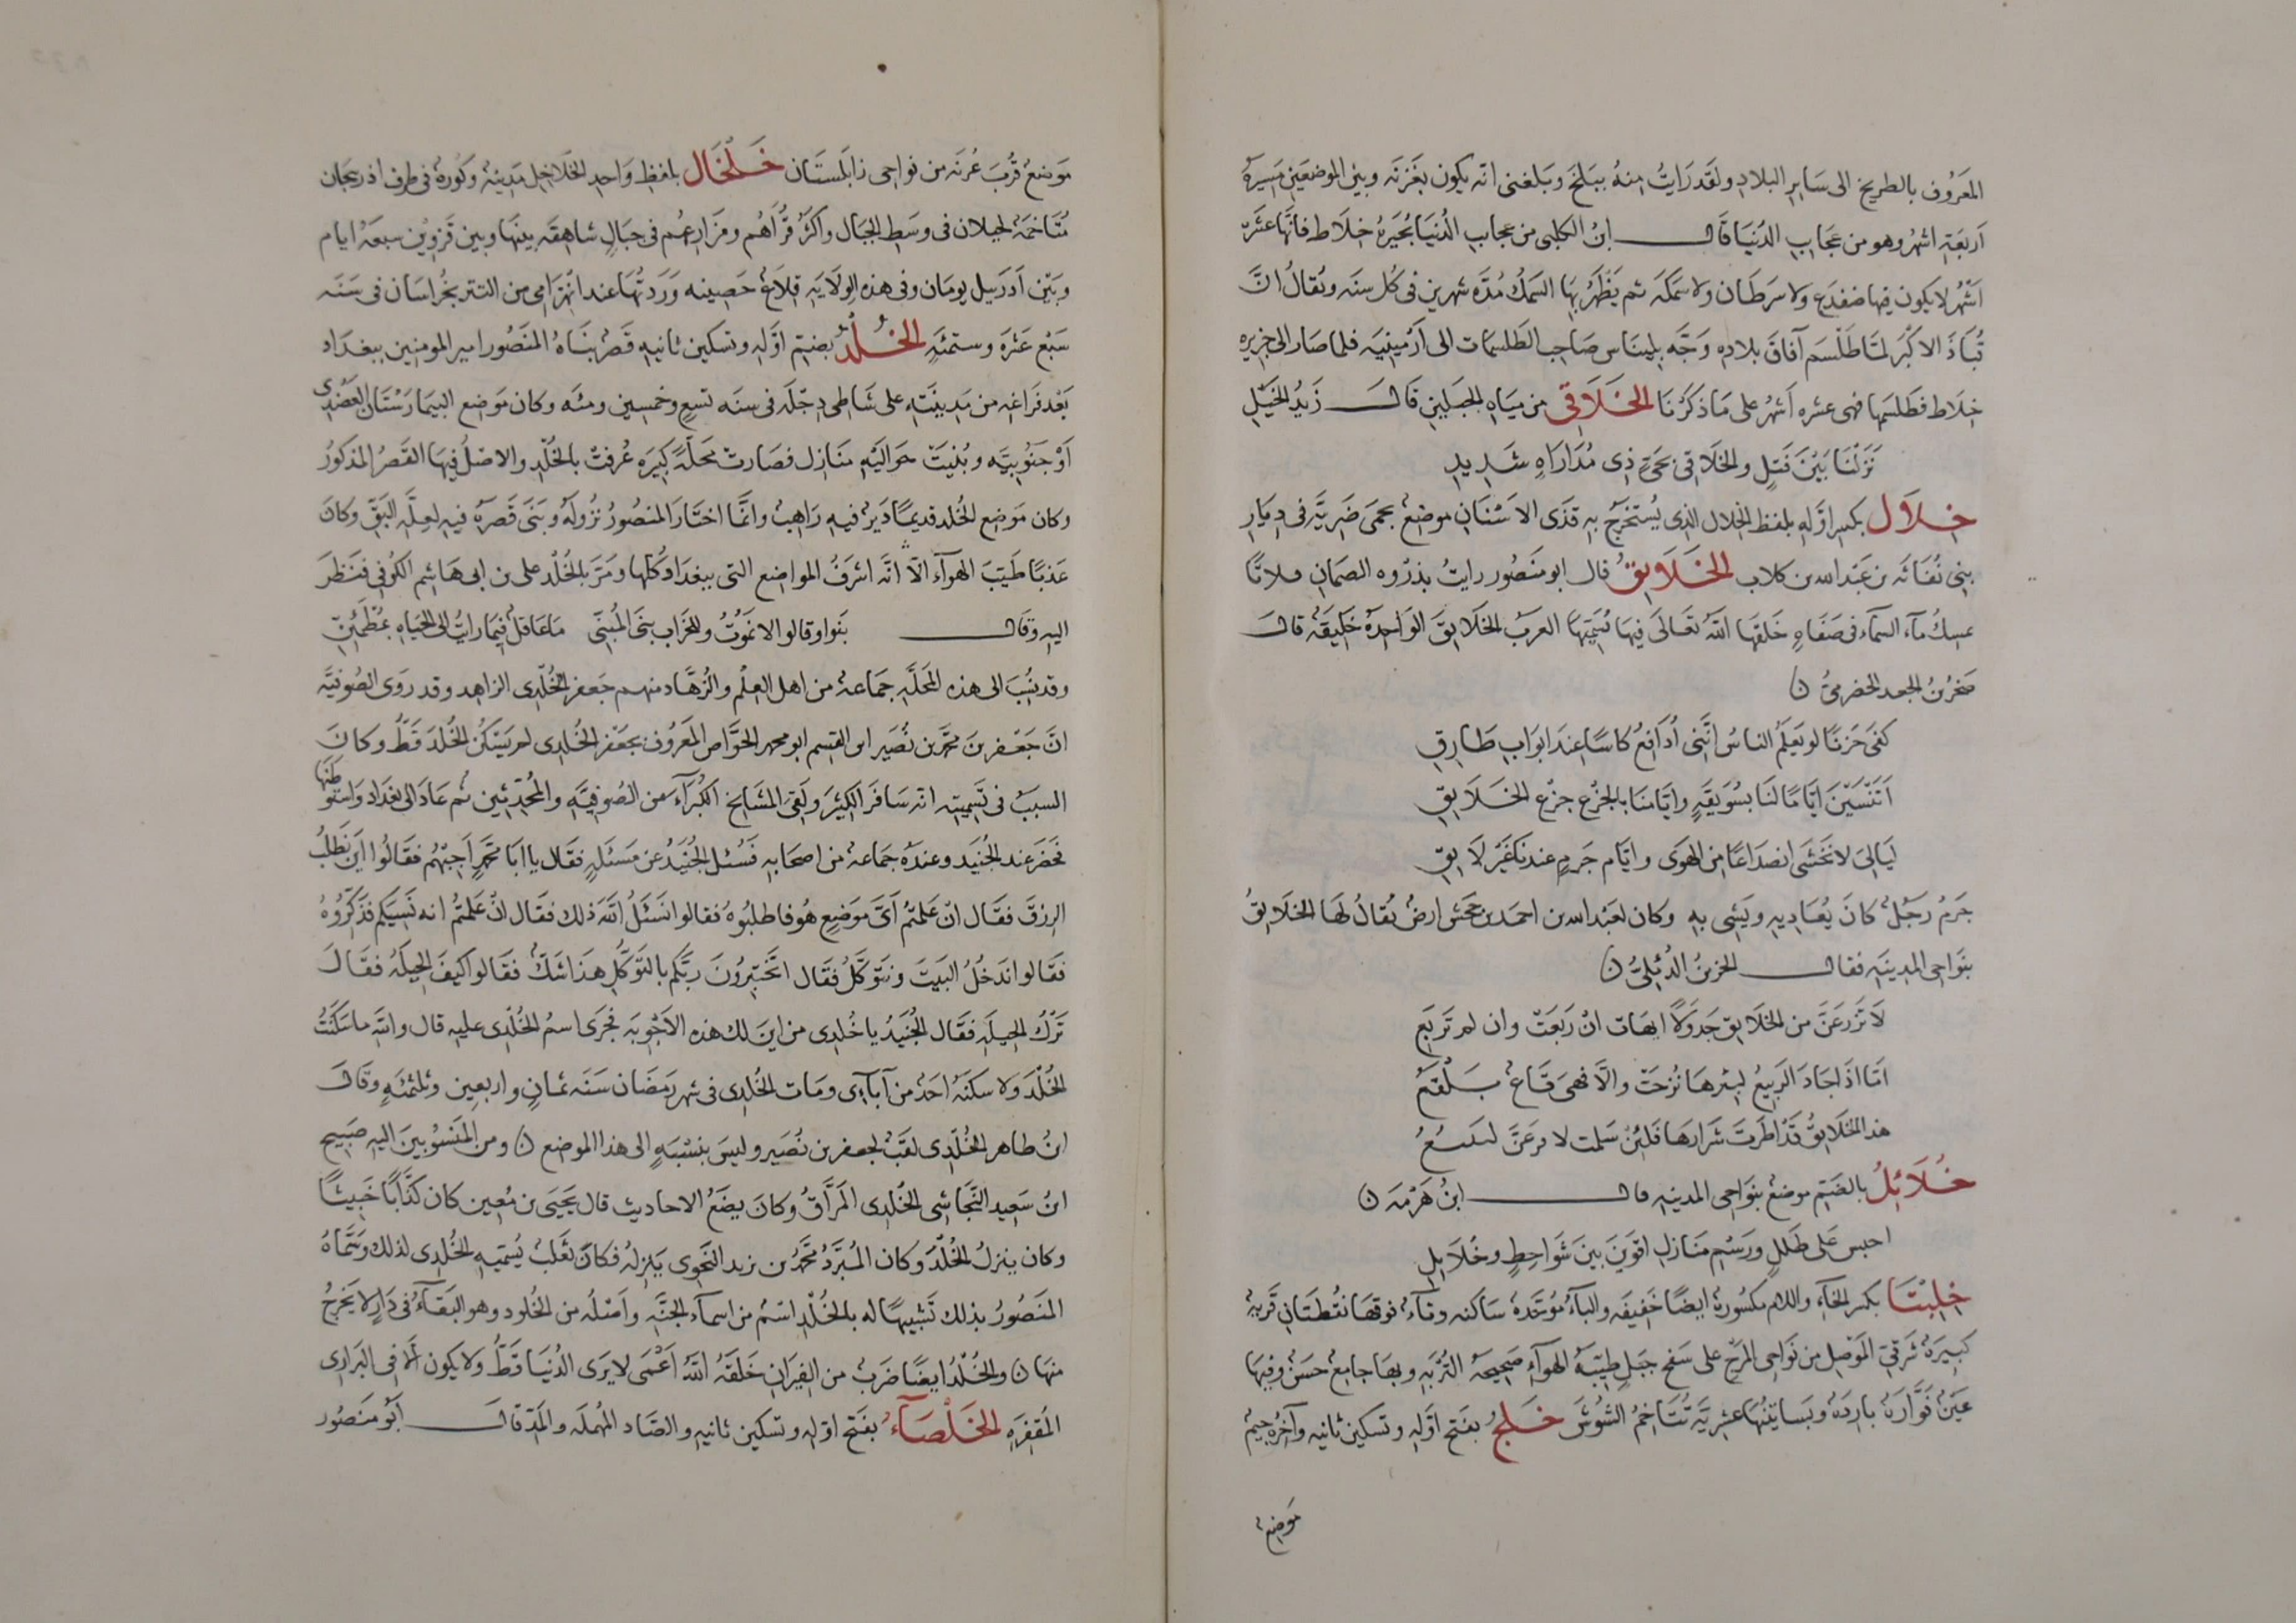 المعروف بالطريخ الى ساير البلاد ولقد رايت منه ببلخ وبلغنى انه يكون بغزنه وبين الموضعين مسيرة
اربعة اشهر وهو من عجايب الدنيا قال ابن الكلبى من عجايب الدنيا بحيرة خلاط فانها عشرة
اشهر لا يكون فيها ضفدع ولا سرطان ولا سمكه ثم يظهر بها السمك مدة شهرين فى كل سنه ويقال ان
قباذ الاكبر لما طلسم آفاق بلاده وجه بليناس صاحب الطلسمات الى ارمينيه فلما صار الى بحيره
خلاط فطلسمها فهى عشره اشهر على ما ذكرنا الخلاقى من مياه الجبلين قال زيد الخيل
نزلنا بين فتل والخلاقى بحى ذى مداراه شديد
خلال بكسر اوله بلفظ الخلال الذى يستخرج به قذى الاسنان موضع بحمى ضريه فى ديار
بنى نفاثه بن عبد الله بن كلاب الخلايق قال ابو منصور رايت بذروه الصمان قلاتا
تمسك ماء السماء فى صفاه خلقها الله تعالى فيها تسميها العرب الخلايق الواحدة خليقه قال
صخر بن الجعد الخضرمى ن
كفى حزنا لو يعلم الناس اننى ادافع كاسا عند ابواب طارق
اتنسين اياما لنا بسويقة وايامنا بالجزع جزع الخلايق
ليالى لا نخشى انصداعا من الهوى وايام جرم عندنا غير لايق
جرم رجل كان يعاديه ويشى به وكان لعبد الله بن احمد بن جحش ارض يقال لها الخلايق
بنواحى المدينه فقال الحزين الدئلى ن
لا تزرعن من الخلايق جدولا ايهات ان ربعت وان لم تربع
اما اذا جاد الربيع لبئرها نزحت والا فهى قاع بلقع
هذى الخلايق قد اطرت شرارها فلئن سلمت لا فرعن لينبع
خلائل بالضم موضع بنواحى المدينه قال ابن هرمه ن
احبس على طلل ورسم منازل اقوين بين شواحط وخلايل
خلبتا بكسر الخاء واللام مكسورة ايضا خفيفه والباء موحدة ساكنه وتاء فوقها نقطتان قرية
كبيرة شرقى الموصل من نواحى المرج على سفح جبل طيبة الهواء صحيحة التربه وبها جامع حسن وفيها
عين فوارة بارده وبساتينها عشرية تتاخم الشوش خلج بفتح اوله وتسكين ثانيه وآخره جيم
موضع
موضع قرب غزنه من نواحى زابلستان خلخال بلفظ واحد الخلاخيل مدينة وكورة فى طرف اذربيجان
متاخمة لجيلان فى وسط الجبال واكثر قراهم ومزارعهم فى جبال شاهقه بينها وبين قزوين سبعة ايام
وبين اردبيل يومان وفى هذه الولايه قلاع حصينه وردتها عند انهزامى من التتر بخراسان فى سنه
سبع عشرة وستمئة الخلد بضم اوله وتسكين ثانيه قصر بناه المنصور امير المومنين ببغداد
بعد فراغه من مدينته على شاطى دجله فى سنه تسع وخمسين ومئه وكان موضع البيمارستان العضدى
او جنوبيه وبنيت حواليه منازل فصارت محلة كبيره عرفت بالخلد والاصل فيها القصر المذكور
وكان موضع الخلد قديما دير فيه راهب وانما اختار المنصور نزوله وبنى قصره فيه لعلة البق وكان
عذبا طيب الهوآء الا انه اشرف المواضع التى ببغداد كلها ومر بالخلد على بن ابى هاشم الكوفى فنظر
اليه وقال بنوا وقالوا لا نموت وللخراب بنى المبنى ما عاقل فيما رايت الى الحياه بمطمئن
وقد ينسب الى هذه المحله جماعة من اهل العلم والزهاد منهم جعفر الخلدى الزاهد وقد روى الصوفيه
ان جعفر بن محمد بن نصير ابن القسم ابو محمد الخواص المعروف بجعفر الخلدى لم يسكن الخلد قط وكان
السبب فى تسميته انه سافر الكثير ولقى المشايخ الكبرآء من الصوفية والمحدثين ثم عاد الى بغداد واستوطنها
فحضر عند الجنيد وعنده جماعة من اصحابه فسئل الجنيد عن مسئلة فقال يا ابا محمد اجبهم فقالوا اين نطلب
الرزق فقال ان علمتم اى موضع هو فاطلبوه فقالوا نسئل الله ذلك فقال ان علمتم انه نسيكم فذكروه
فقالوا ندخل البيت ونتوكل فقال اتختبرون ربكم بالتوكل هذا شك فقالوا كيف الحيلة فقال
ترك الحيله فقال الجنيد يا خلدى من اين لك هذه الاجوبه فجرى اسم الخلدى عليه قال والله ما سكنت
الخلد ولا سكنه احد من آبآءى ومات الخلدى فى شهر رمضان سنه ثمان واربعين وثلثمئه وقال
ابن طاهر الخلدى لقب لجعفر بن نصير وليس بنسبة الى هذا الموضع ن ومن المنسوبين اليه صبيح
ابن سعيد النجاشى الخلدى المراق وكان يضع الاحاديث قال يحيى بن معين كان كذابا خبيثا
وكان ينزل الخلد وكان المبرد محمد بن زيد النحوى ينزله فكان ثعلب يسميه الخلدى لذلك وسماه
المنصور بذلك تشبيها له بالخلد اسم من اسمآء الجنه واصله من الخلود وهو البقآء فى دار لا يخرج
منها ن والخلد ايضا ضرب من الفيران خلقه الله اعمى لا يرى الدنيا قط ولا يكون الا فى البرارى
المقفره الخلصآء بفتح اوله وتسكين ثانيه والصاد المهمله والمد قال ابو منصور